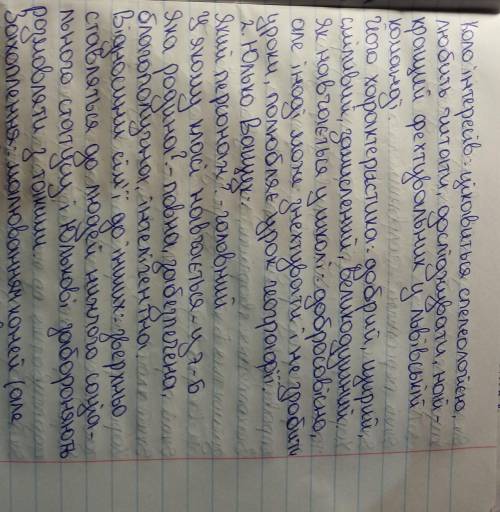 Коло інтересів: цікавиться спелеологією,
любить читати, досліджувати, най-
кращий фехтувальник у львівській
команді.
Його характеристика: добрий, щирий,
сміливий, замислений, великодушний,
як навчається у школі: добросовісно,
але іноді може знехтувати і не зробити
уроки, полюбляє урок географії.
2. Юлько Ващук:
Який персонаж? - головний
У якому класі навчається - у 7-Б
Яка родина? - повна, забезпечена,
благополучна, інтелігентна.
Відношення сім'ї до інших: зверхньо
ставляться до людей нижчого соціа-
льного статусу, Юлькові забороняють
розмовляти з такими.
Захоплення: малюванням коней (але